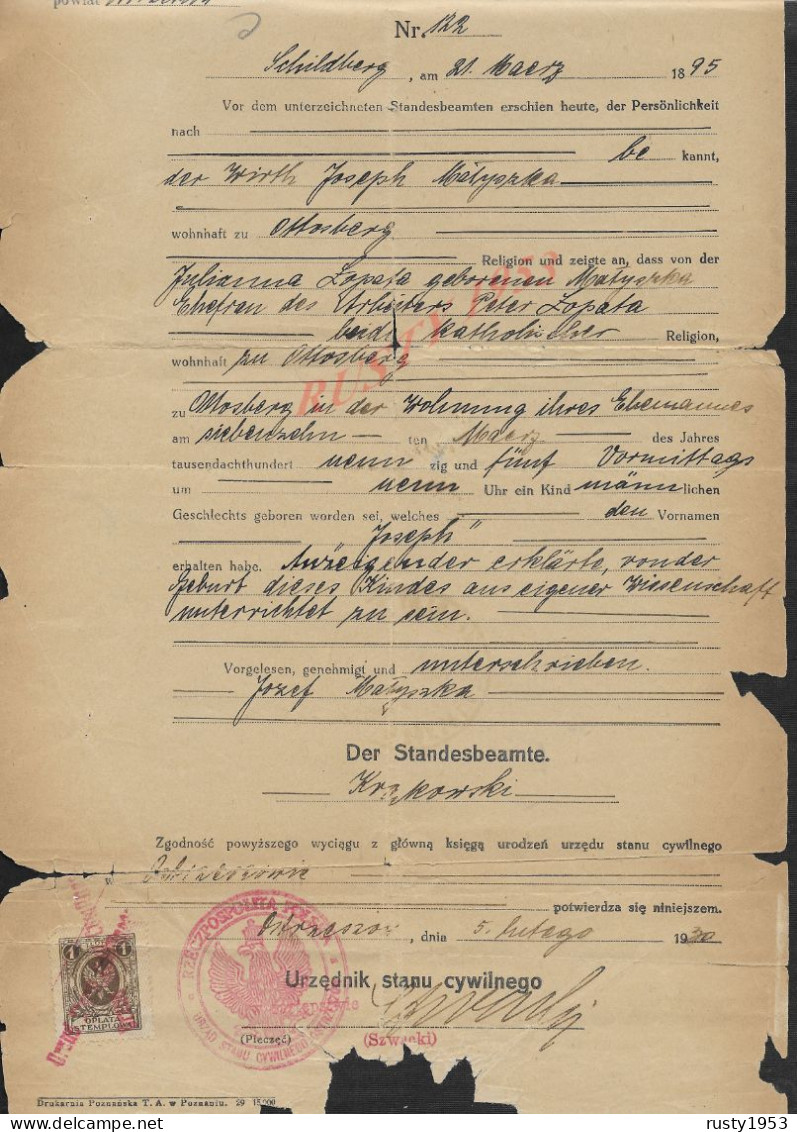 powiat
Nr. 122
Schildberg, am 21. Maerz 1895
Vor dem unterzeichneten Standesbeamten erschien heute, der Persönlichkeit
nach
be kannt,
der Wirth Joseph Małyszka
wohnhaft zu Ottosberg
Religion und zeigte an, dass von der
Julianna Łopata geborenen Matyszka
Ehefrau des Arbeiters Peter Łopata
beide katholischer Religion,
wohnhaft zu Ottosberg
zu Ottosberg in der Wohnung ihres Ehemannes
am siebenzehn ten Maerz des Jahres
tausendachthundert neun zig und fünf Vormittags
um neun Uhr ein Kind männlichen
Geschlechts geboren worden sei, welches den Vornamen
Joseph"
erhalten habe. Anzeigender erklärte, von der
Geburt dieses Kindes aus eigener Wissenschaft
unterrichtet zu sein.
Vorgelesen, genehmigt und unterschrieben.
Jozef Małyszka
Der Standesbeamte.
Krąkowski
Zgodność powyższego wyciągu z główną księgą urodzeń urzędu stanu cywilnego
w
potwierdza się niniejszem.
Ostrzeszów, dnia 5. lutego 1930
Urzędnik stanu cywilnego
(Pieczęć) (Szwacki)
RZECZPOSPOLITA POLSKA
URZĄD STANU CYWILNEGO
1 1
OPŁATA
STEMPLOWA
Drukarnia Poznańska T. A. w Poznaniu. 29 15000
RUSTY 1953
delcampe.net
rusty1953